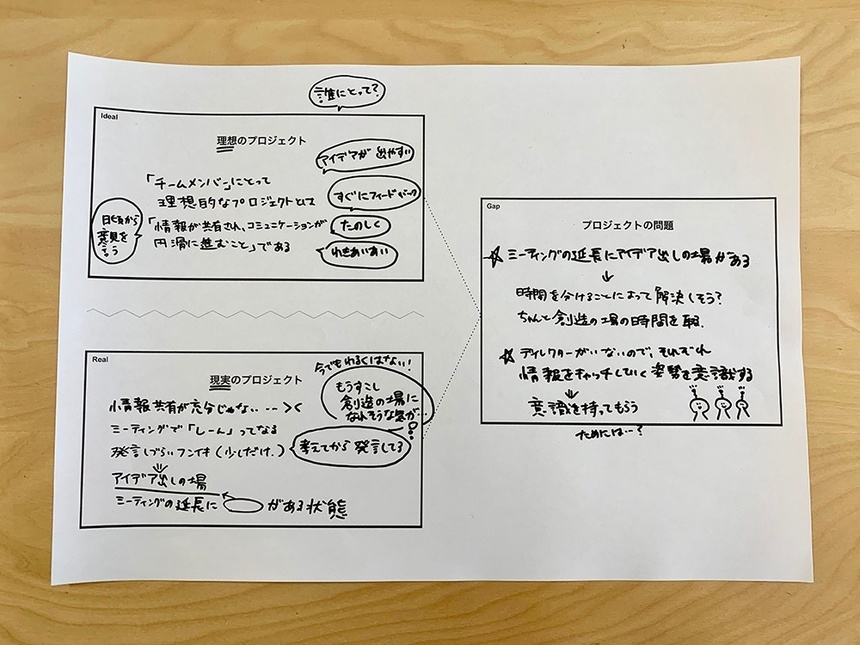 誰にとって?
Ideal
理想のプロジェクト
アイデアが出やすい
「チームメンバー」にとって
理想的なプロジェクトとは
すぐにフィードバック
「情報が共有され、コミュニケーションが
円滑に進むこと」である
たのしく
わきあいあい
日頃から
意見を
言う
Real
現実のプロジェクト
今でもわるくはない!
もうすこし
創造の場に
なれそうな気が…
情報共有が充分じゃない...><
ミーティングで「しーん」ってなる
発言しづらいフンイキ(少しだけ.)
考えてから発言してる
アイデア出しの場
ミーティングの延長に
がある状態
Gap
プロジェクトの問題
☆ミーティングの延長にアイデア出しの場がある
↓
時間を分けることによって解決しそう?
ちゃんと創造の場の時間を取る.
☆ディレクターがいないので、それぞれ
情報をキャッチしていく姿勢を意識する
意識を持ってもらう
ためには…?